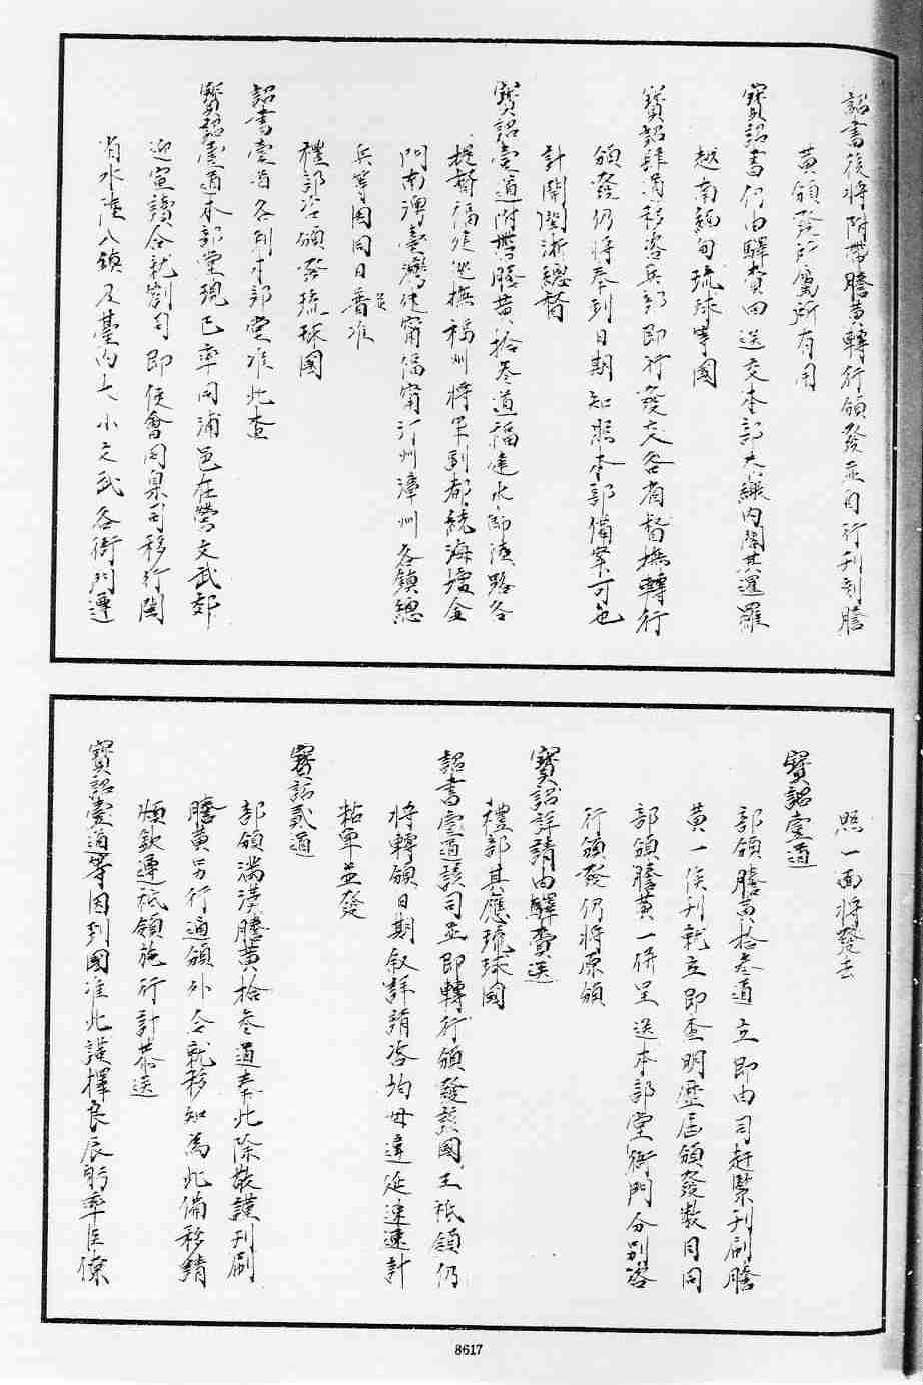 詔書後將附帶謄黃轉行頒發並自行刊刻謄
黃頒發所屬所有用
寶詔書仍由驛賫回送交本部大繳內閣其暹羅
越南緬甸琉球等國
寶詔肆道移咨兵部即行發交各省督撫轉行
頒發仍將奉到日期知照本部備案可也
計開閩浙總督
寶詔壹道附帶謄黃拾叁道福建水師陸路各
提督福建巡撫福州將軍副都統海壇金
門南澳臺灣建甯福甯汀州漳州各鎮總
兵等因同日又准
禮部咨頒發琉球國
詔書壹道各到本部堂准此查
寶詔壹道本部堂現已率同浦邑在營文武郊
迎宣讀合就劄司即便會同臬司移行閩
省水陸八鎮及臺內大小文武各衙門遵
照一面將發去
寶詔壹道
部頒謄黃拾叁道立即由司趕緊刊刷謄
黃一俟刊就立即查明歷屆頒發數目同
部頒謄黃一併呈送本部堂衙門分別咨
行頒發仍將原頒
寶詔詳請由驛賫送
禮部其應琉球國
詔書壹道該司並即轉行頒發該國王祇領仍
將轉頒日期叙詳請咨均毋違延速速計
粘單並發
寶詔貳道
部頒滿漢謄黃拾叁道奉此除敬謹刊刷
謄黃另行通頒外合就移知為此備移請
煩欽遵祇領施行計恭送
寶詔壹道等因到國准此謹擇良辰躬率臣僚
8617